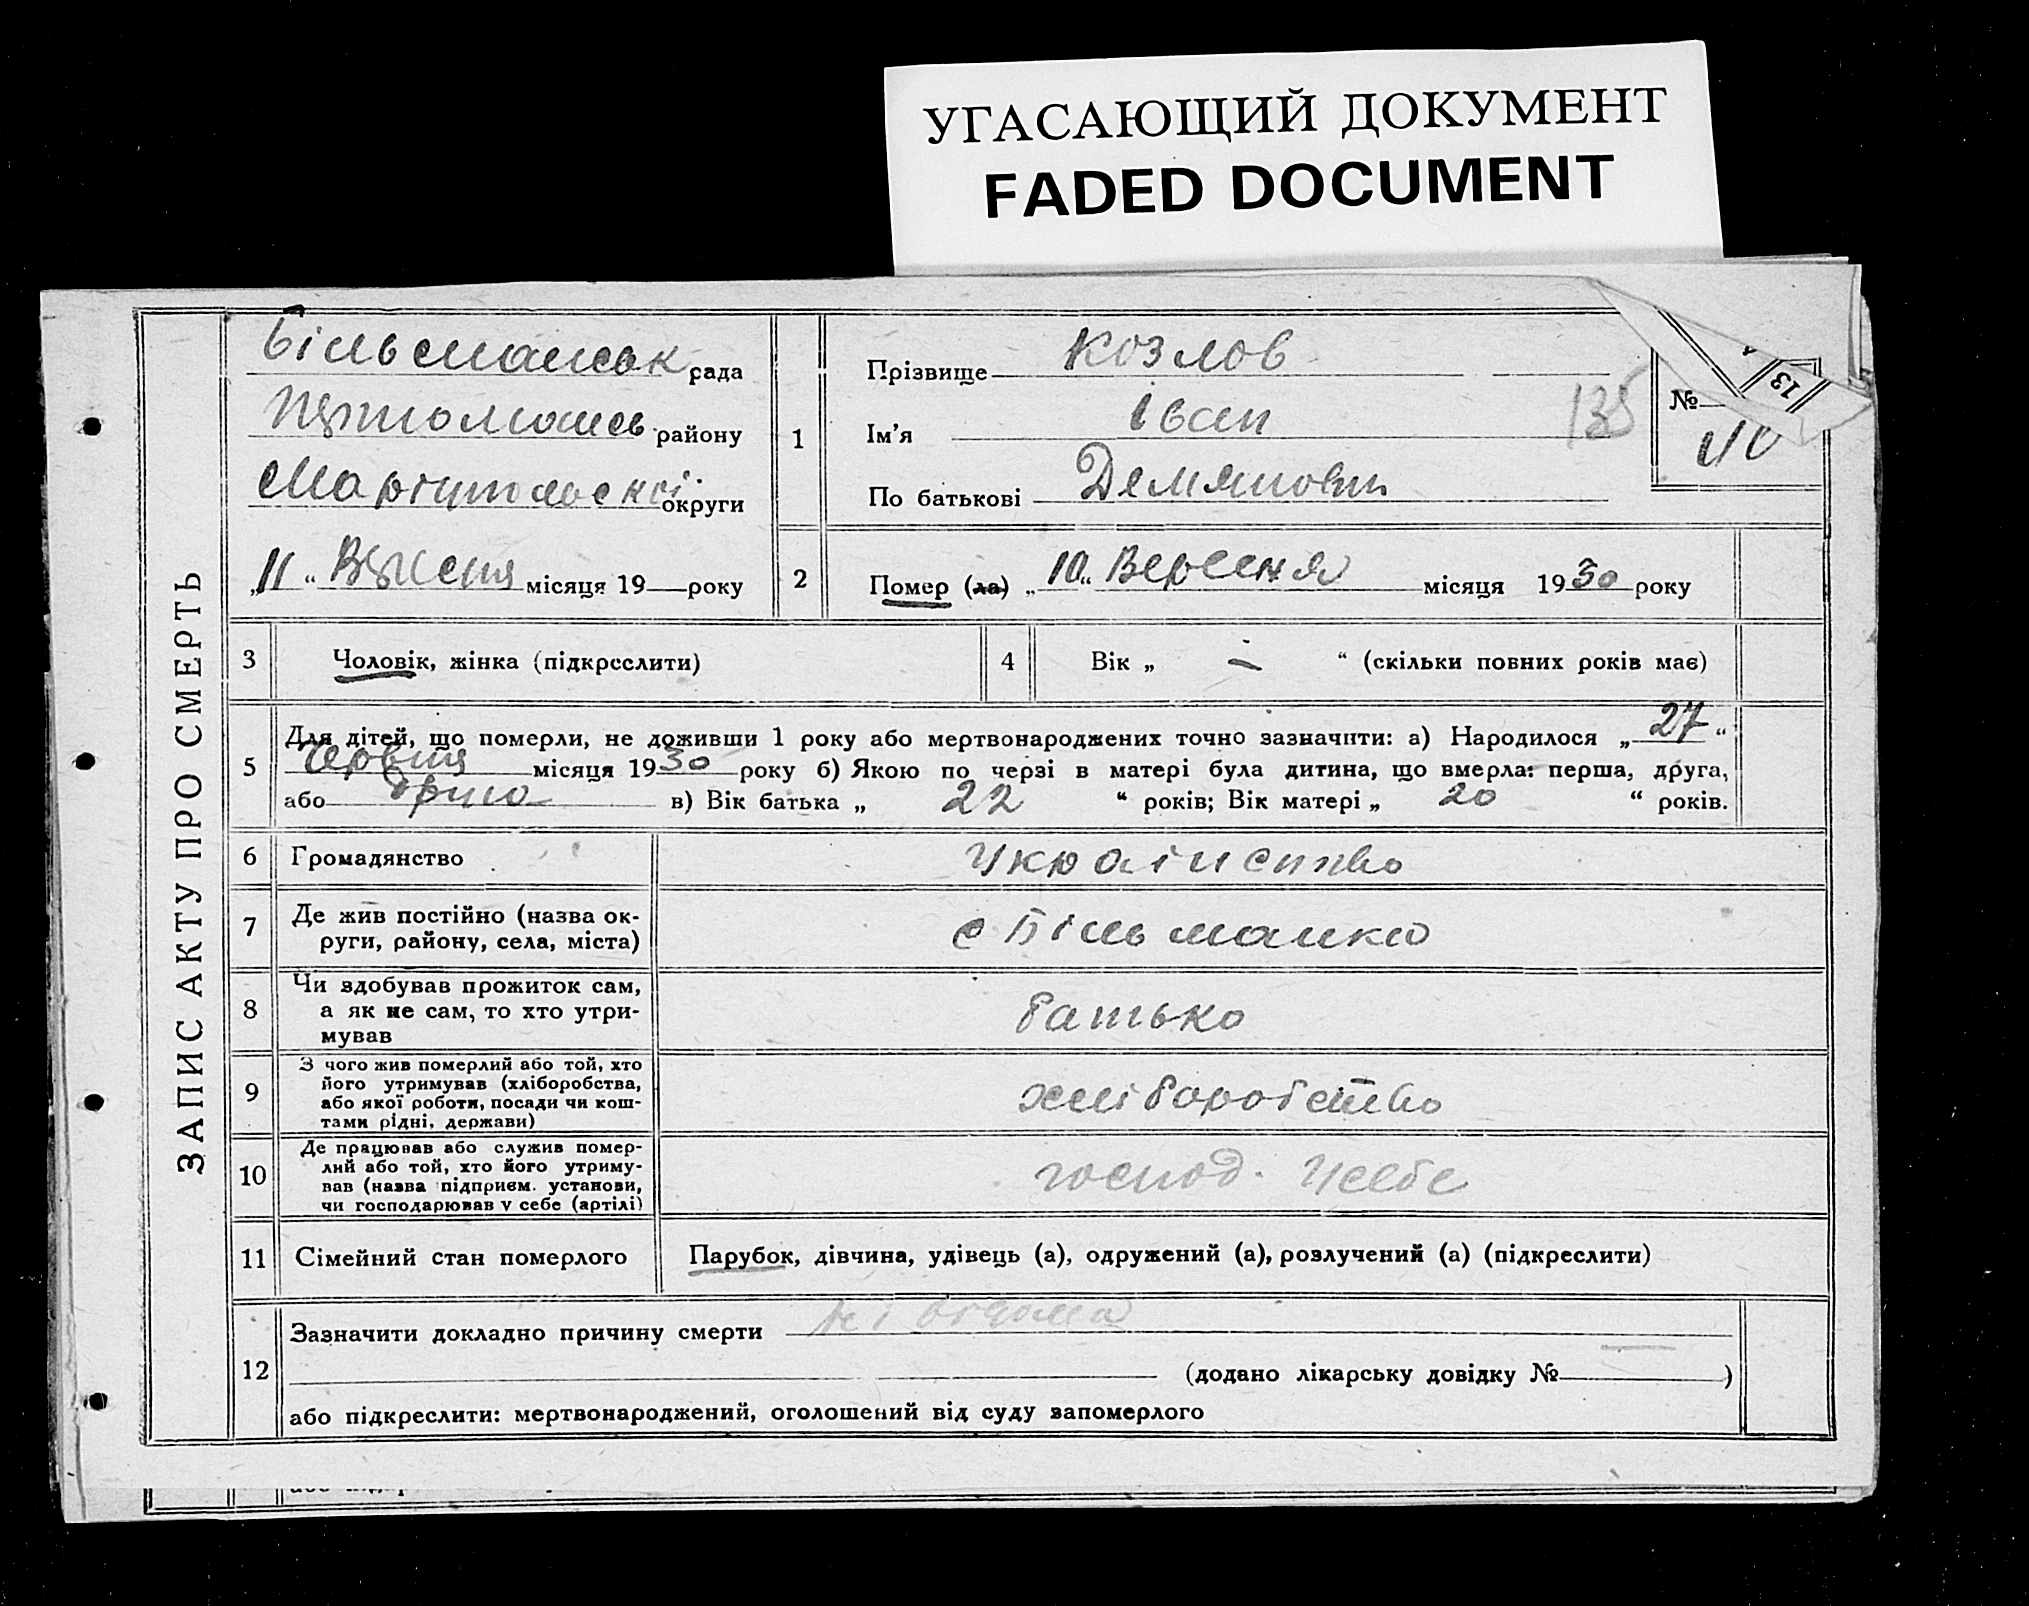 УГАСАЮЩИЙ ДОКУМЕНТ
FADED DOCUMENT
ЗАПИС АКТУ ПРО СМЕРТЬ
Більманськ рада
району
округи
„11“ місяця 19 року
1
Прізвище Козлов
Ім'я Іван
По батькові Демянович
135
№
13
2
Помер (ла) „10“ Вересня місяця 1930 року
3
Чоловік, жінка (підкреслити)
4
Вік „ — “ (скільки повних років має)
5
Для дітей, що померли, не доживши 1 року або мертвонароджених точно зазначити: а) Народилося „27“
Червня місяця 1930 року б) Якою по черзі в матері була дитина, що вмерла: перша, друга,
або в) Вік батька „ 22 “ років; Вік матері „ 20 “ років.
6
Громадянство
7
Де жив постійно (назва ок-
руги, району, села, міста)
с Більманка
8
Чи здобував прожиток сам,
а як не сам, то хто утри-
мував
батько
9
З чого жив померлий або той, хто
його утримував (хліборобства,
або якої роботи, посади чи кош-
тами рідні, держави)
хліборобство
10
Де працював або служив помер-
лий або той, хто його утриму-
вав (назва підприєм. установи,
чи господарював у себе (артілі)
господ. у себе
11
Сімейний стан померлого
Парубок, дівчина, удівець (а), одружений (а), розлучений (а) (підкреслити)
12
Зазначити докладно причину смерти
(додано лікарську довідку № )
або підкреслити: мертвонароджений, оголошений від суду запомерлого